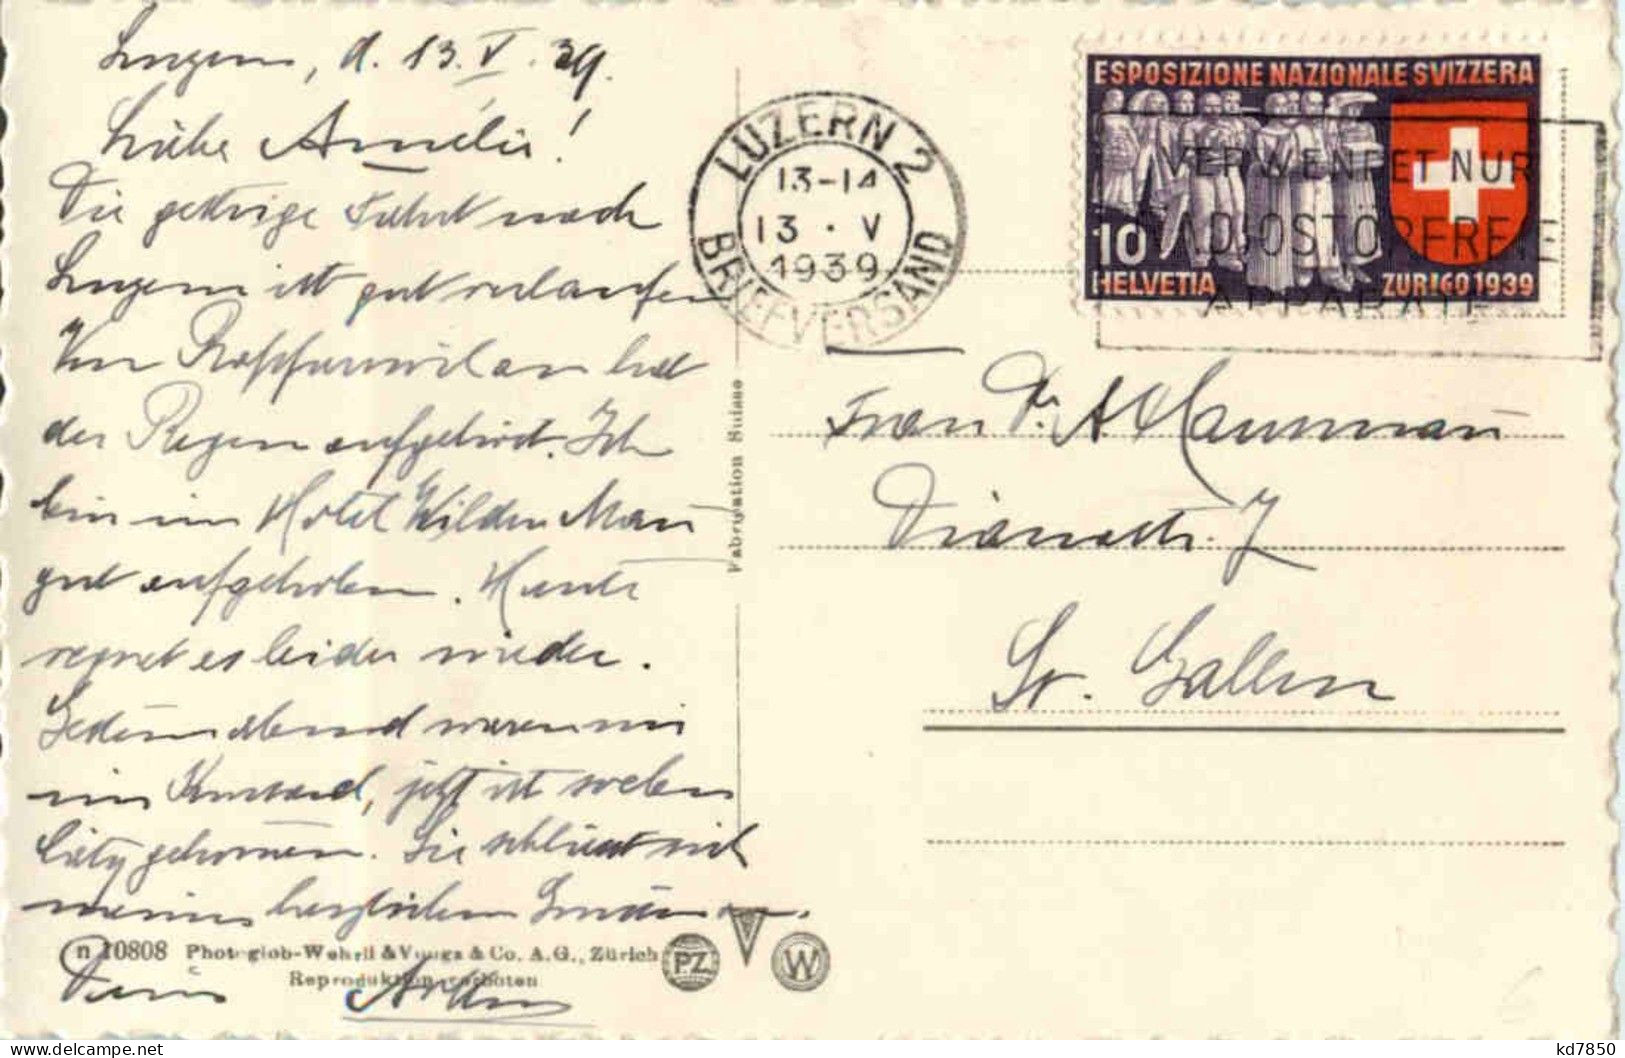 Luzern, d. 13. V. 39.
Liebe Amélie!
Die gestrige Fahrt nach
Luzern ist gut verlaufen
Von Rapperswil an hat
der Regen aufgehört. Ich
bin im Hotel Wilden Mann
gut aufgehoben. Heute
regnet es leider wieder.
abend waren wir
im jetzt ist soeben
gekommen. Sie schliesst sich
meinen herzlichen Grüssen an.
Dein Arthur
n 10808 Photoglob-Wehrli & Vouga & Co. A.G., Zürich
Reproduktion verboten
PZ W
Fabrication Suisse
LUZERN 2
13-14
13 · V
1939
BRIEFVERSAND
ESPOSIZIONE NAZIONALE SVIZZERA
10
HELVETIA ZURIGO 1939
VERWENDET NUR
RADIOSTÖRFREIE
APPARATE
Frau Dr. A. Hausmann
Dianastr. 7
St. Gallen
kd7850